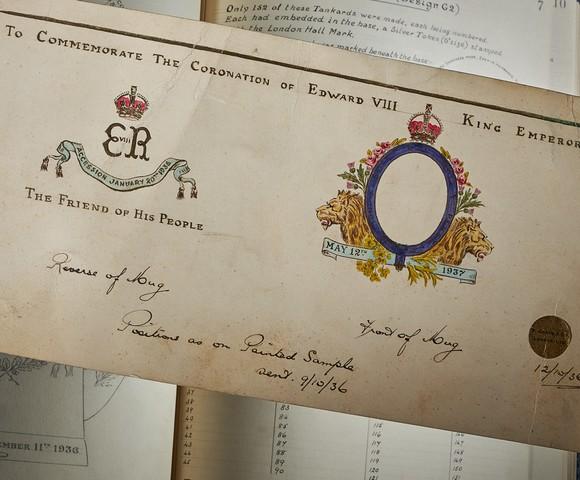 Design G2)
7 10
Only 152 of these Tankards were made, each being numbered.
Each had embedded in the base, a Silver Token (6ᵈ size) stamped
the London Hall Mark.
marked beneath the base
TO COMMEMORATE THE CORONATION OF EDWARD VIII KING EMPEROR
EVIIIR
ACCESSION JANUARY 20TH 1936
THE FRIEND OF HIS PEOPLE
MAY 12TH 1937
Reverse of Mug
Front of Mug
Positions as on Painted Sample
sent. 9/10/36
12/10/36
EMBER 11TH 1936
39
40
41
42
43
44
45
83
84
85
86
87
88
89
90
115
116
117
118
119
120
121
147
148
149
150
151
152